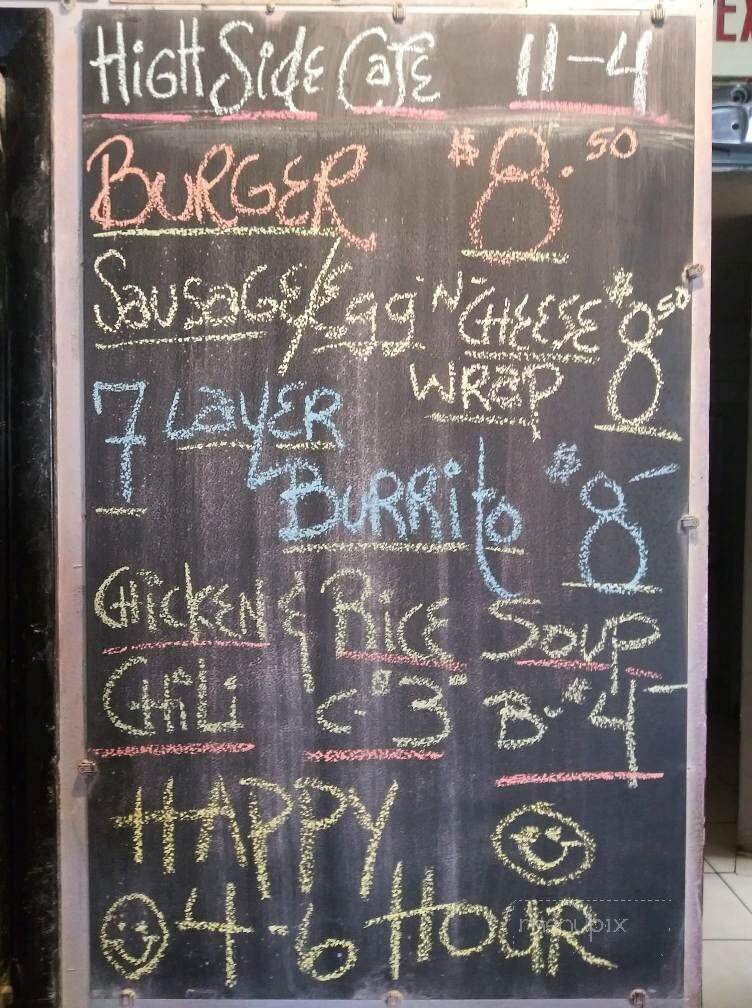 HIGH SIDE CAFE 11-4
BURGER $8.50
SAUSAGE/EGG "N" CHEESE $8.50
WRAP
7 LAYER
BURRITO $8-
CHICKEN & RICE SOUP
CHILI C-$3- B-$4-
HAPPY
4-6 HOUR
menupix
EX